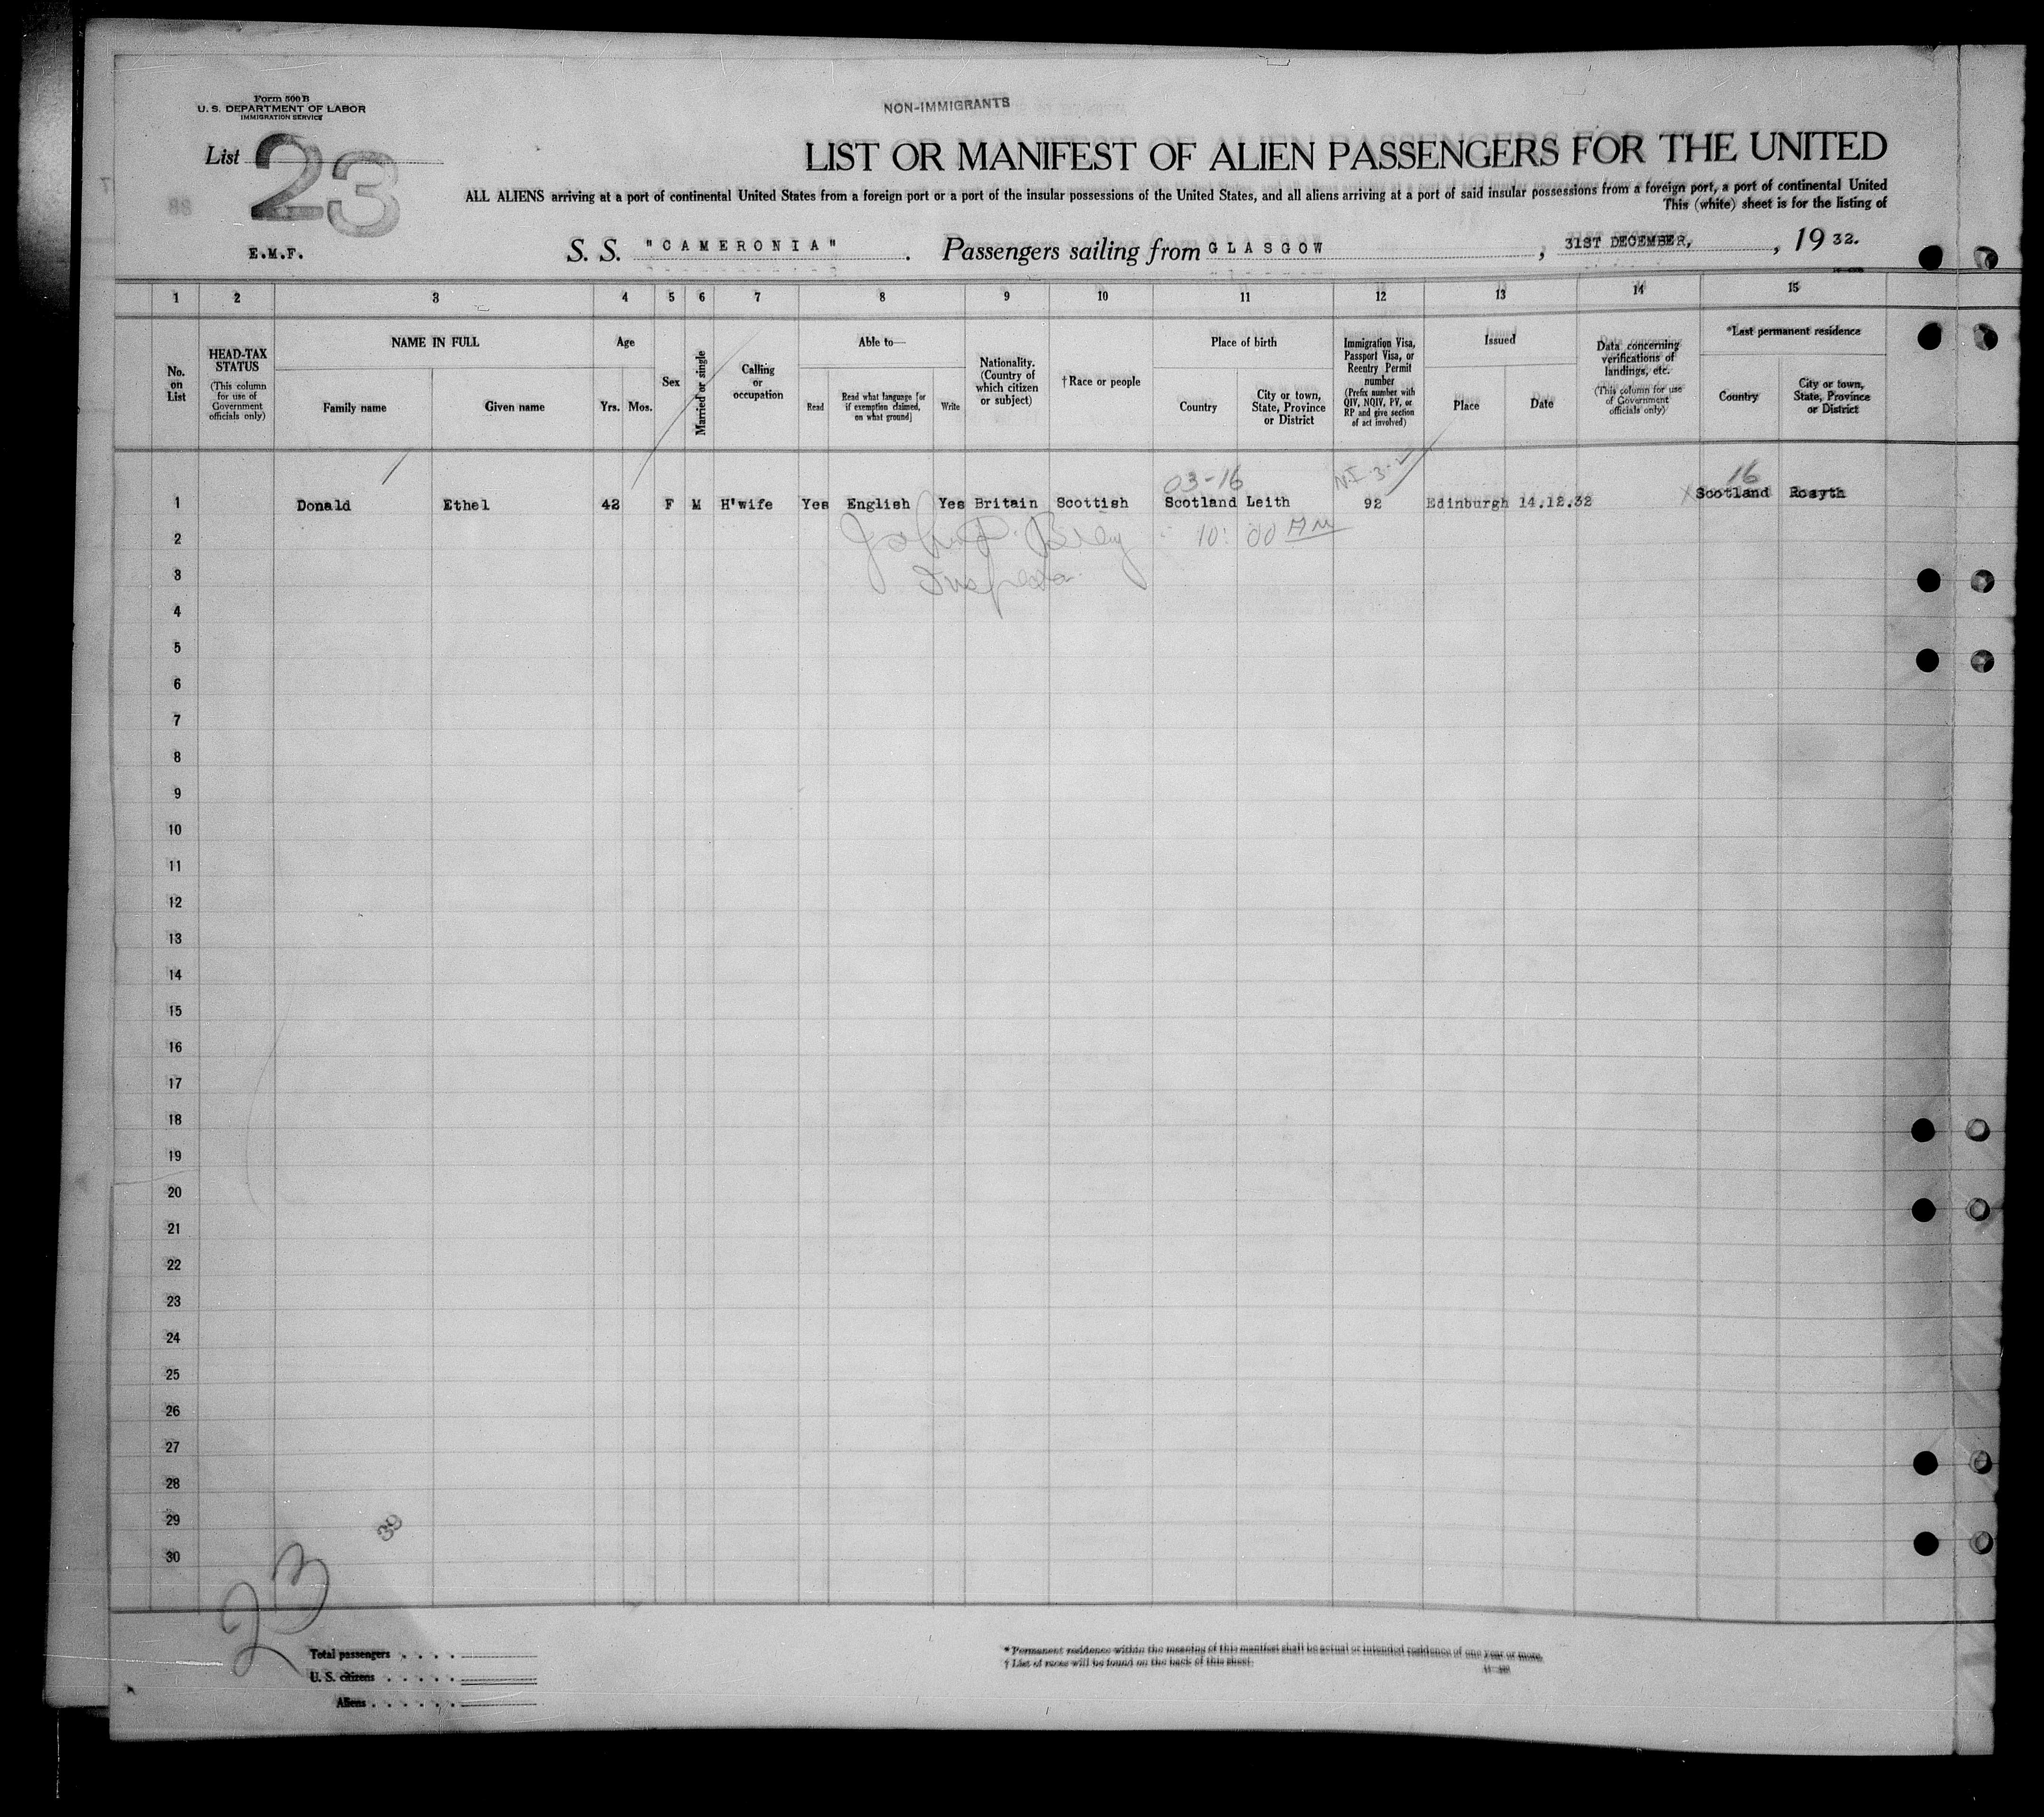 Form 500 B
U. S. DEPARTMENT OF LABOR
IMMIGRATION SERVICE
NON-IMMIGRANTS
List 23
LIST OR MANIFEST OF ALIEN PASSENGERS FOR THE UNITED
ALL ALIENS arriving at a port of continental United States from a foreign port or a port of the insular possessions of the United States, and all aliens arriving at a port of said insular possessions from a foreign port, a port of continental United
This (white) sheet is for the listing of
E.M.F.
S. S. "CAMERONIA". Passengers sailing from GLASGOW, 31ST DECEMBER, , 19 32.
1 2 3 4 5 6 7 8 9 10 11 12 13 14 15
No. on List
HEAD-TAX STATUS
(This column for use of Government officials only)
NAME IN FULL
Family name
Given name
Age
Yrs. Mos.
Sex
Married or single
Calling or occupation
Able to—
Read
Read what language [or if exemption claimed, on what ground]
Write
Nationality. (Country of which citizen or subject)
†Race or people
Place of birth
Country
City or town, State, Province or District
Immigration Visa, Passport Visa, or Reentry Permit number
(Prefix number with QIV, NQIV, PV, or RP and give section of act involved)
Issued
Place
Date
Data concerning verifications of landings, etc.
(This column for use of Government officials only)
*Last permanent residence
Country
City or town, State, Province or District
03-16
16
1 Donald Ethel 42 F M H'wife Yes English Yes Britain Scottish Scotland Leith 92 Edinburgh 14.12.32 Scotland Rosyth
2
10:00 AM
3
4
5
6
7
8
9
10
11
12
13
14
15
16
17
18
19
20
21
22
23
24
25
26
27
28
29
30
39
23
Total passengers
U. S. citizens
Aliens
* Permanent residence within the meaning of this manifest shall be actual or intended residence of one year or more.
† List of races will be found on the back of this sheet.